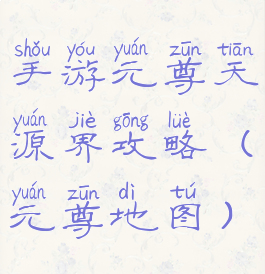 shǒu yóu yuán zūn tiān
手游元尊天
yuán jiè gōng lüè
源界攻略（
yuán zūn dì tú
元尊地图）